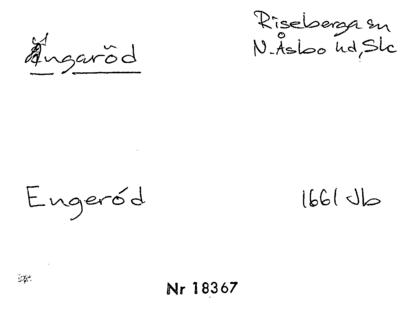 Ängaröd
Riseberga sn
N. Åsbo hd, Sk
Engeröd
1661 Jb
Nr 18367